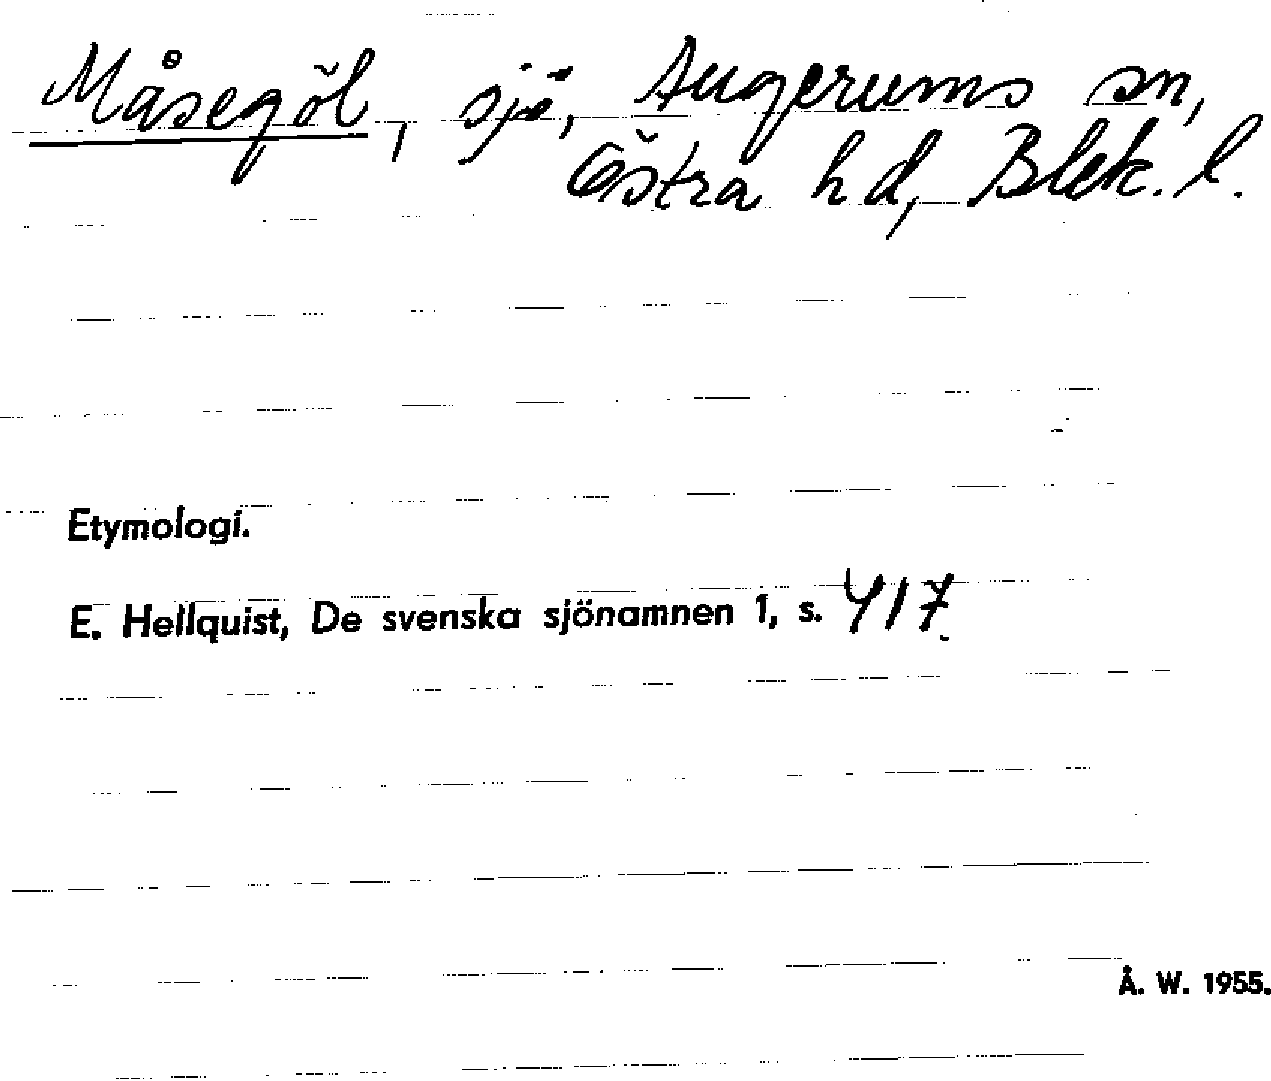 Måsegöl, sjö, Augerums sn,
Östra hd, Blek. l.
Etymologi.
E. Hellquist, De svenska sjönamnen 1, s. 417
Å. W. 1955.